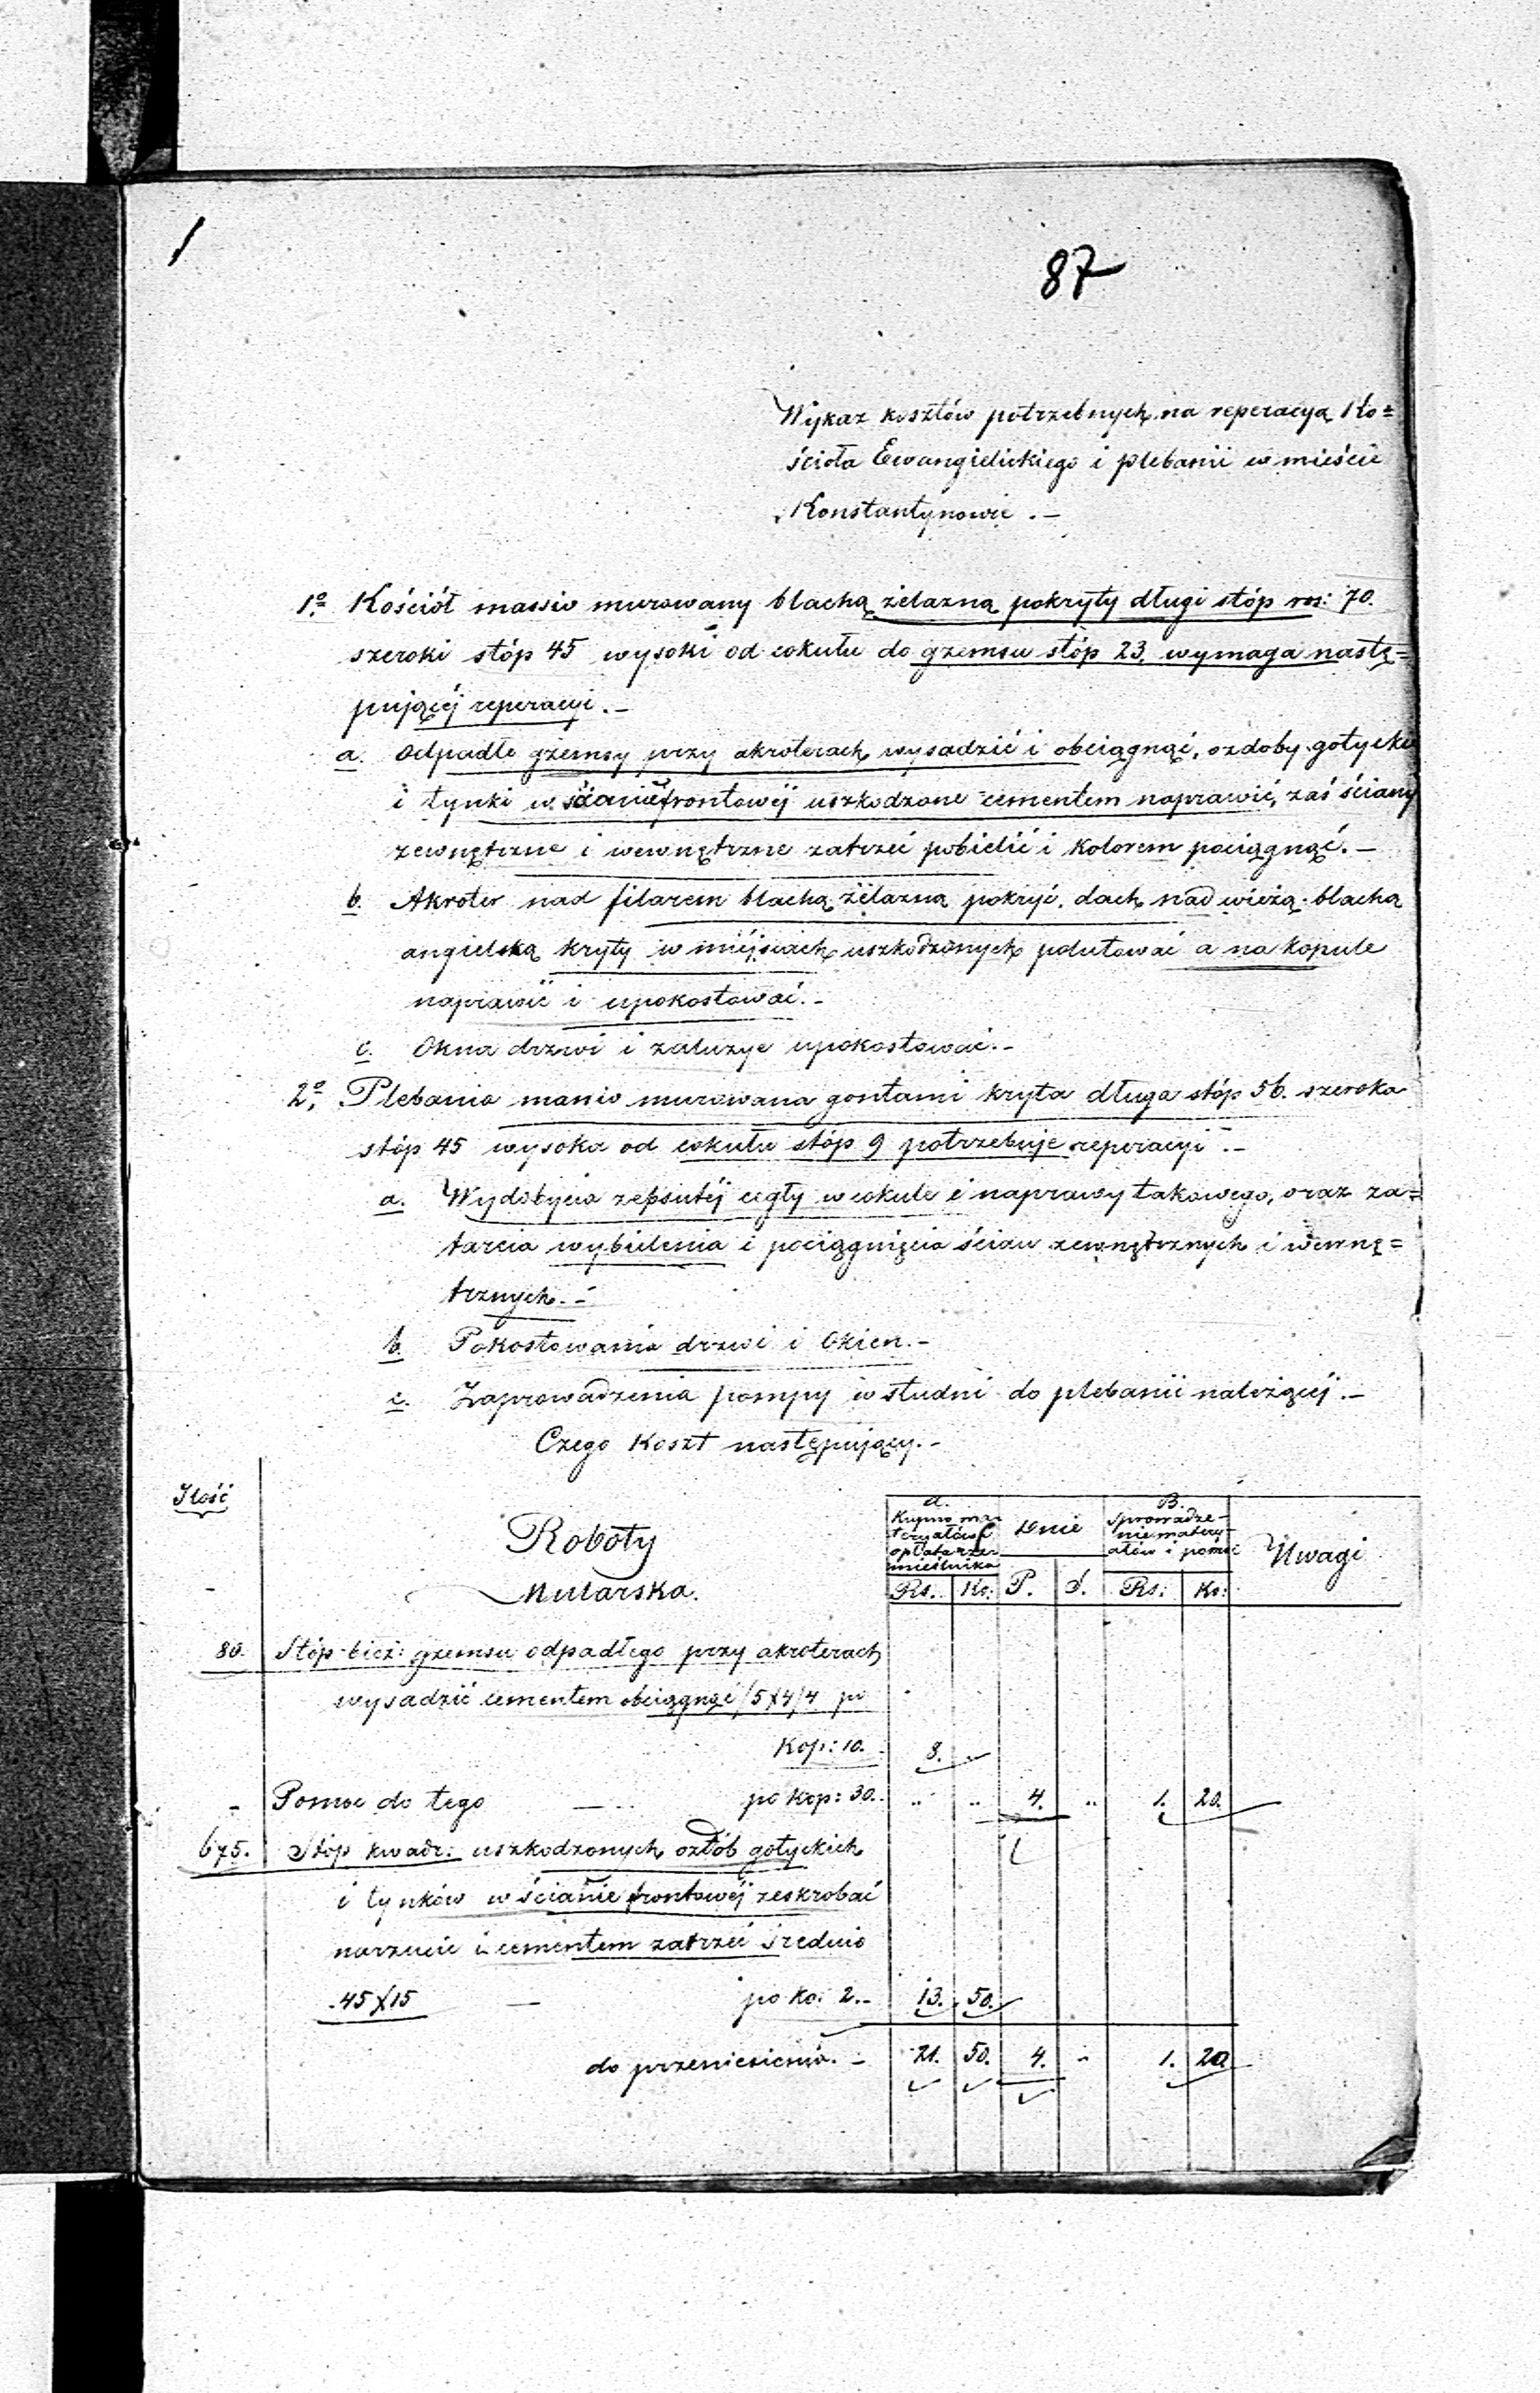 1
87
Wykaz kosztów potrzebnych na reperacyą Ko=
ścioła Ewangielickiego i plebanii w mieście
Konstantynowie. –
1o Kościół massiv murowany blachą żelazną pokryty długi stóp ros: 70.
szeroki stóp 45 wysoki od cokułu do gzemsu stóp 23. wymaga nastę=
pującéj reperacyi. –
a. Odpadłe gzemsy przy akroterach wysadzić i obciągnąć, ozdoby gotyckie
i tynki w ścianie frontowéj uszkodzone cementem naprawić, zaś ściany
zewnętrzne i wewnętrzne zatrzeć pobielić i kolorem pociągnąć. –
b. Akroter nad filarem blachą żelazną pokryć, dach nad wieżą blachą
angielską kryty w miéjscach uszkodzonych polutować a na kopule
naprawić i upokostować. –
c. Okna drzwi i żaluzye upokostować. –
2o. Plebania massiv murowana gontami kryta długa stóp 56. szeroka
stóp 45 wysoka od cokułu stóp 9 potrzebuje reperacyi. –
a. Wydobycia zepsutéj cegły w cokule i naprawy takowego, oraz za=
tarcia wybielenia i pociągnięcia ścian zewnętrznych i wewnę=
trznych. –
b. Pokostowania drzwi i Okien. –
c. Zaprowadzenia pompy w studni do plebanii należącéj. –
Czego koszt następujący. –
Ilość
Roboty
Mularska.
A.
Kupno ma-
teryałów i
opłata rze-
mieślnika
Rs. Ko:
Dnie
P. S.
B.
Sprowadze-
nie matery-
ałów i pomoc
Rs: Ko:
Uwagi
80. Stóp bież: gzemsu odpadłego przy akroterach
wysadzić cementem obciągnąć /5X4/4 po
Kop: 10. 8. "
- Pomoc do tego — po kop: 30. " " 4. " 1. 20.
675. Stóp kwadr: uszkodzonych ozdób gotyckich
i tynków w ścianie frontowéj zeskrobać
narzucić i cementem zatrzeć średnio
45X15 — po ko: 2. – 13. 50.
do przeniesienia. – 21. 50. 4. - 1. 20